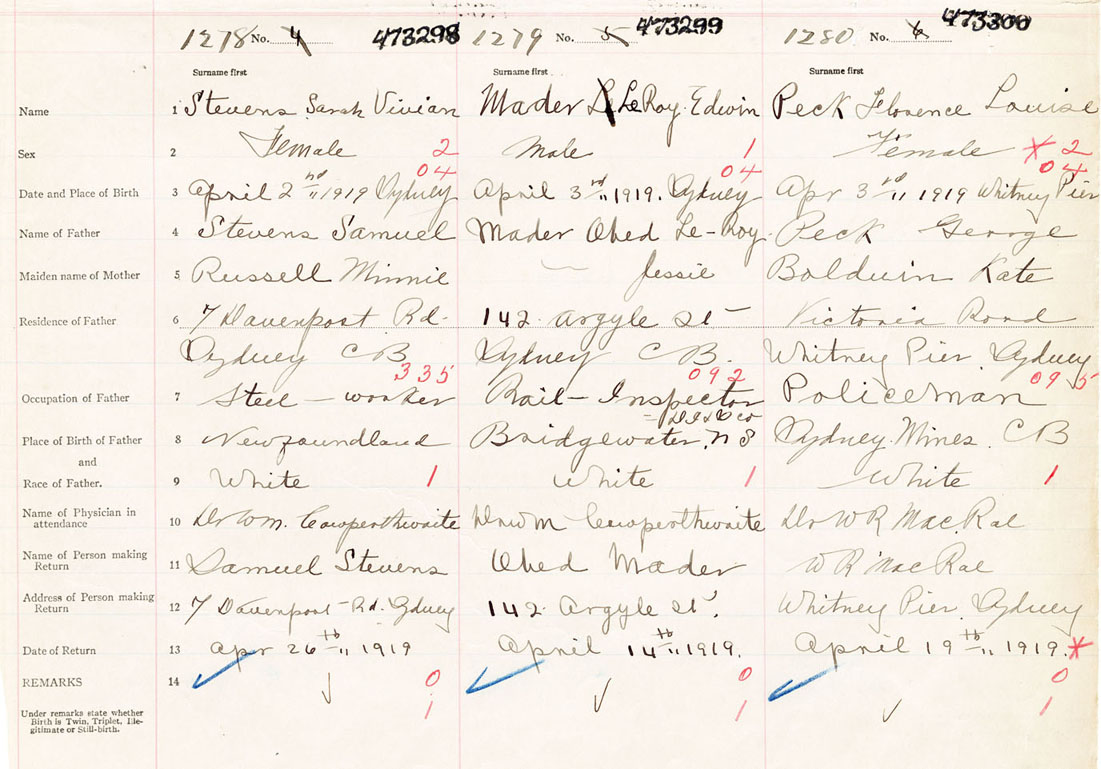 1278 No. 4 473298 1279 No. 5 473299 1280 No. 6 473300
Surname first Surname first Surname first
Name 1 Stevens Sarah Vivian Mader LeRoy Edwin Peck Florence Louise
Sex 2 Female 2 Male 1 Female X 2
04 04 04
Date and Place of Birth 3 April 2nd 1919 Sydney April 3rd 1919. Sydney Apr 3rd 1919 Whitney Pier
Name of Father 4 Stevens Samuel Mader Obed Le-Roy Peck George
Maiden name of Mother 5 Russell Minnie — Jessie Baldwin Kate
Residence of Father 6 7 Davenport Rd. 142 Argyle St Victoria Road
Sydney CB Sydney CB. Whitney Pier Sydney
335 092 095
Occupation of Father 7 Steel-worker Rail-Inspector Policeman
Place of Birth of Father 8 Newfoundland Bridgewater, N S Sydney Mines. CB
and
Race of Father. 9 White 1 White 1 White 1
Name of Physician in
attendance 10 Dr Wm. Cowperthwaite Dr Wm Cowperthwaite Dr W R MacRae
Name of Person making
Return 11 Samuel Stevens Obed Mader W R MacRae
Address of Person making
Return 12 7 Davenport Rd. Sydney 142 Argyle St. Whitney Pier Sydney
Date of Return 13 Apr 26th 1919 April 14th 1919. April 19th 1919. X
REMARKS 14 0 0 0
Under remarks state whether 1 1 1
Birth is Twin, Triplet, Ille-
gitimate or Still-birth.